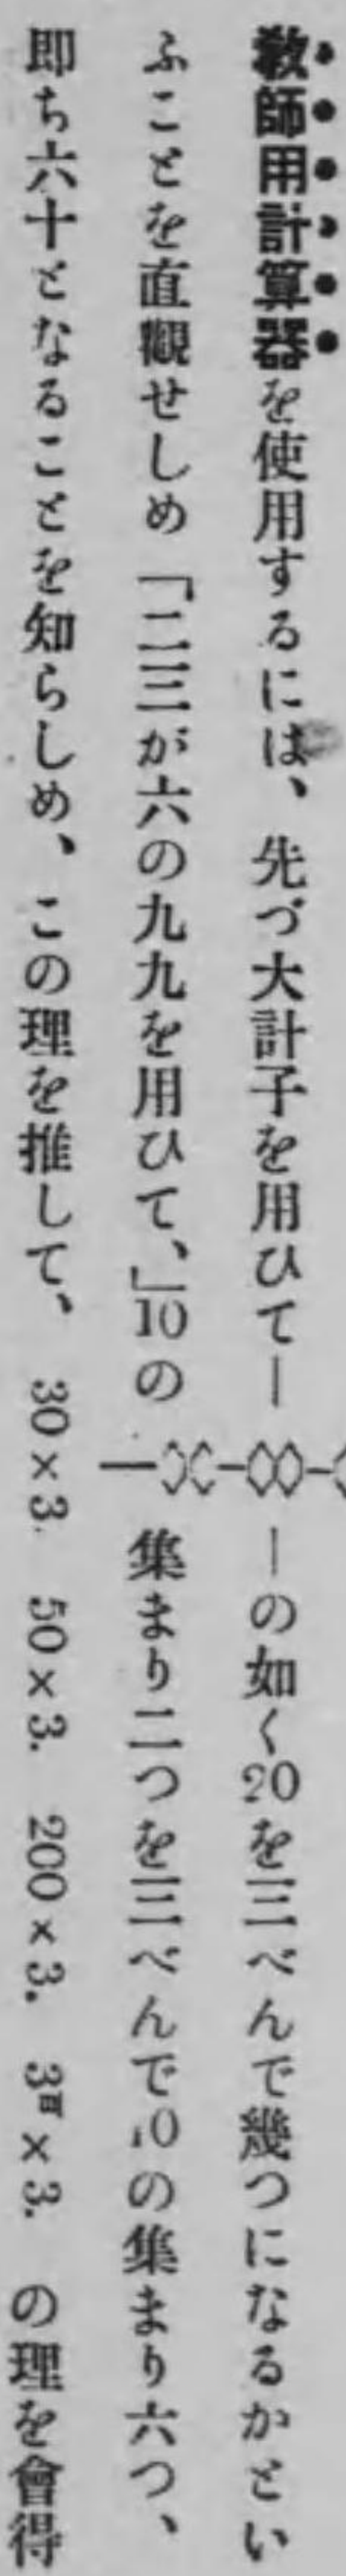 敎師用計算器を使用するには、先づ大計子を用ひて——の如く20を三べんで幾つになるかとい
ふことを直觀せしめ「二三が六の九九を用ひて、」10の集まり二つを三べんで10の集まり六つ、
即ち六十となることを知らしめ、この理を推して、 30×3. 50×3. 200×3. 3冊×3. の理を會得